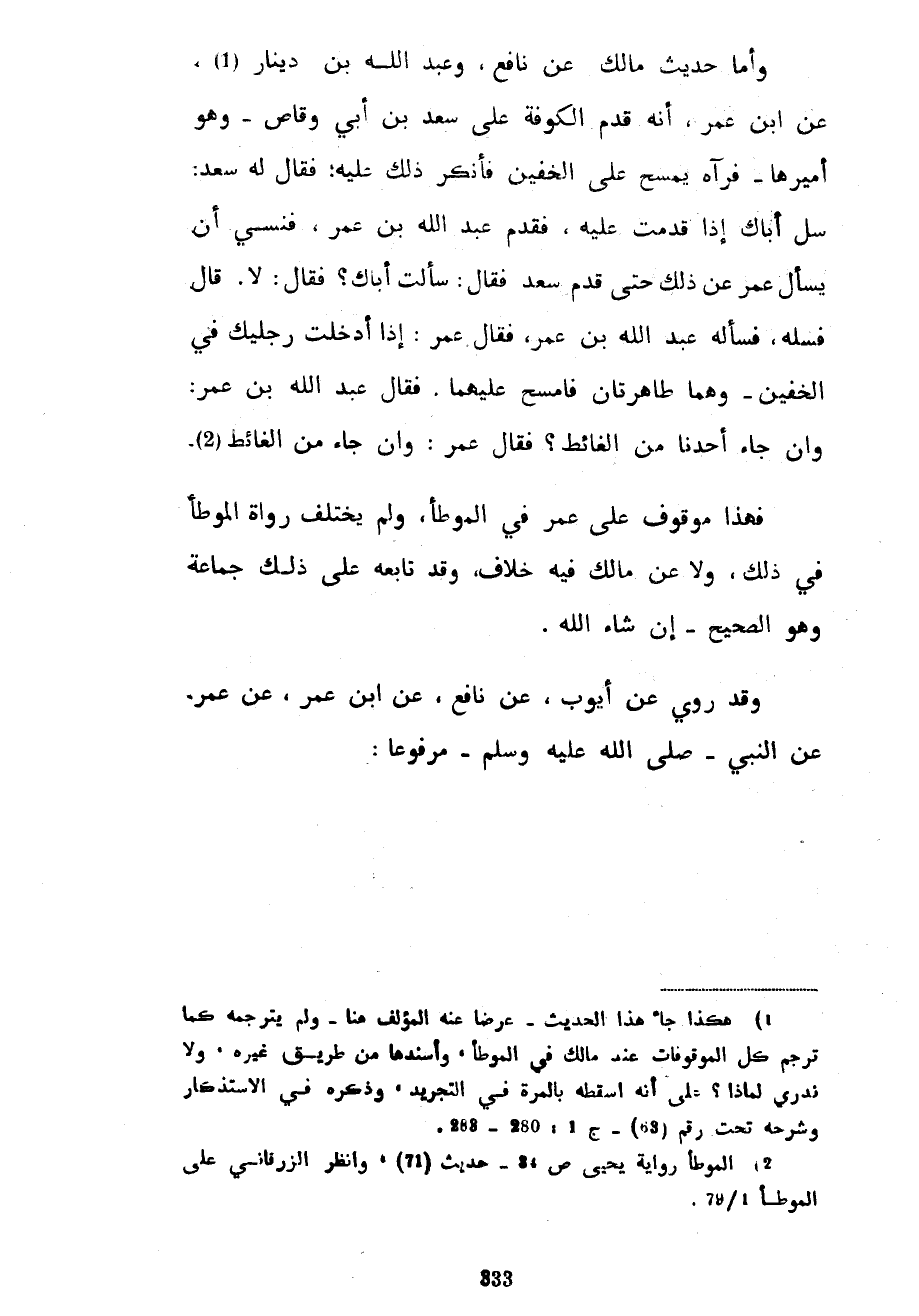 وأما حديث مالك عن نافع ، وعبد اللــه بن دينار (1) ،
عن ابن عمر ، أنه قدم الكوفة على سعد بن أبي وقاص ـ وهو
أميرها ـ فرآه يمسح على الخفين فأنكر ذلك عليه؛ فقال له سعد:
سل أباك إذا قدمت عليه ، فقدم عبد الله بن عمر ، فنســي أن
يسأل عمر عن ذلك حتى قدم سعد فقال : سألت أباك؟ فقال : لا . قال
فسله ، فسأله عبد الله بن عمر، فقال عمر : إذا أدخلت رجليك في
الخفين ـ وهما طاهرتان فامسح عليهما . فقال عبد الله بن عمر:
وان جاء أحدنا من الغائط ؟ فقال عمر : وان جاء من الغائط (2).
فهذا موقوف على عمر في الموطأ، ولم يختلف رواة الموطأ
في ذلك ، ولا عن مالك فيه خلاف، وقد تابعه على ذلـك جماعة
وهو الصحيح ـ إن شاء الله .
وقد روي عن أيوب ، عن نافع ، عن ابن عمر ، عن عمر.
عن النبي ـ صلى الله عليه وسلم ـ مرفوعا :
1) هكذا جاء هذا الحديث ـ عرضا عنه المؤلف هنا ـ ولم يترجمه كما
ترجم كل الموقوفات عند مالك في الموطأ ، وأسندها من طريــق غيره ، ولا
ندري لماذا ؟ على أنه اسقطه بالمرة فـي التجريد ، وذكره فـي الاستذكار
وشرحه تحت رقم (63) ـ ج 1 : 280 ـ 283 .
2) الموطأ رواية يحيى ص 34 ـ حديث (71) ، وانظر الزرقانــي على
الموطــأ 1/79 .
333